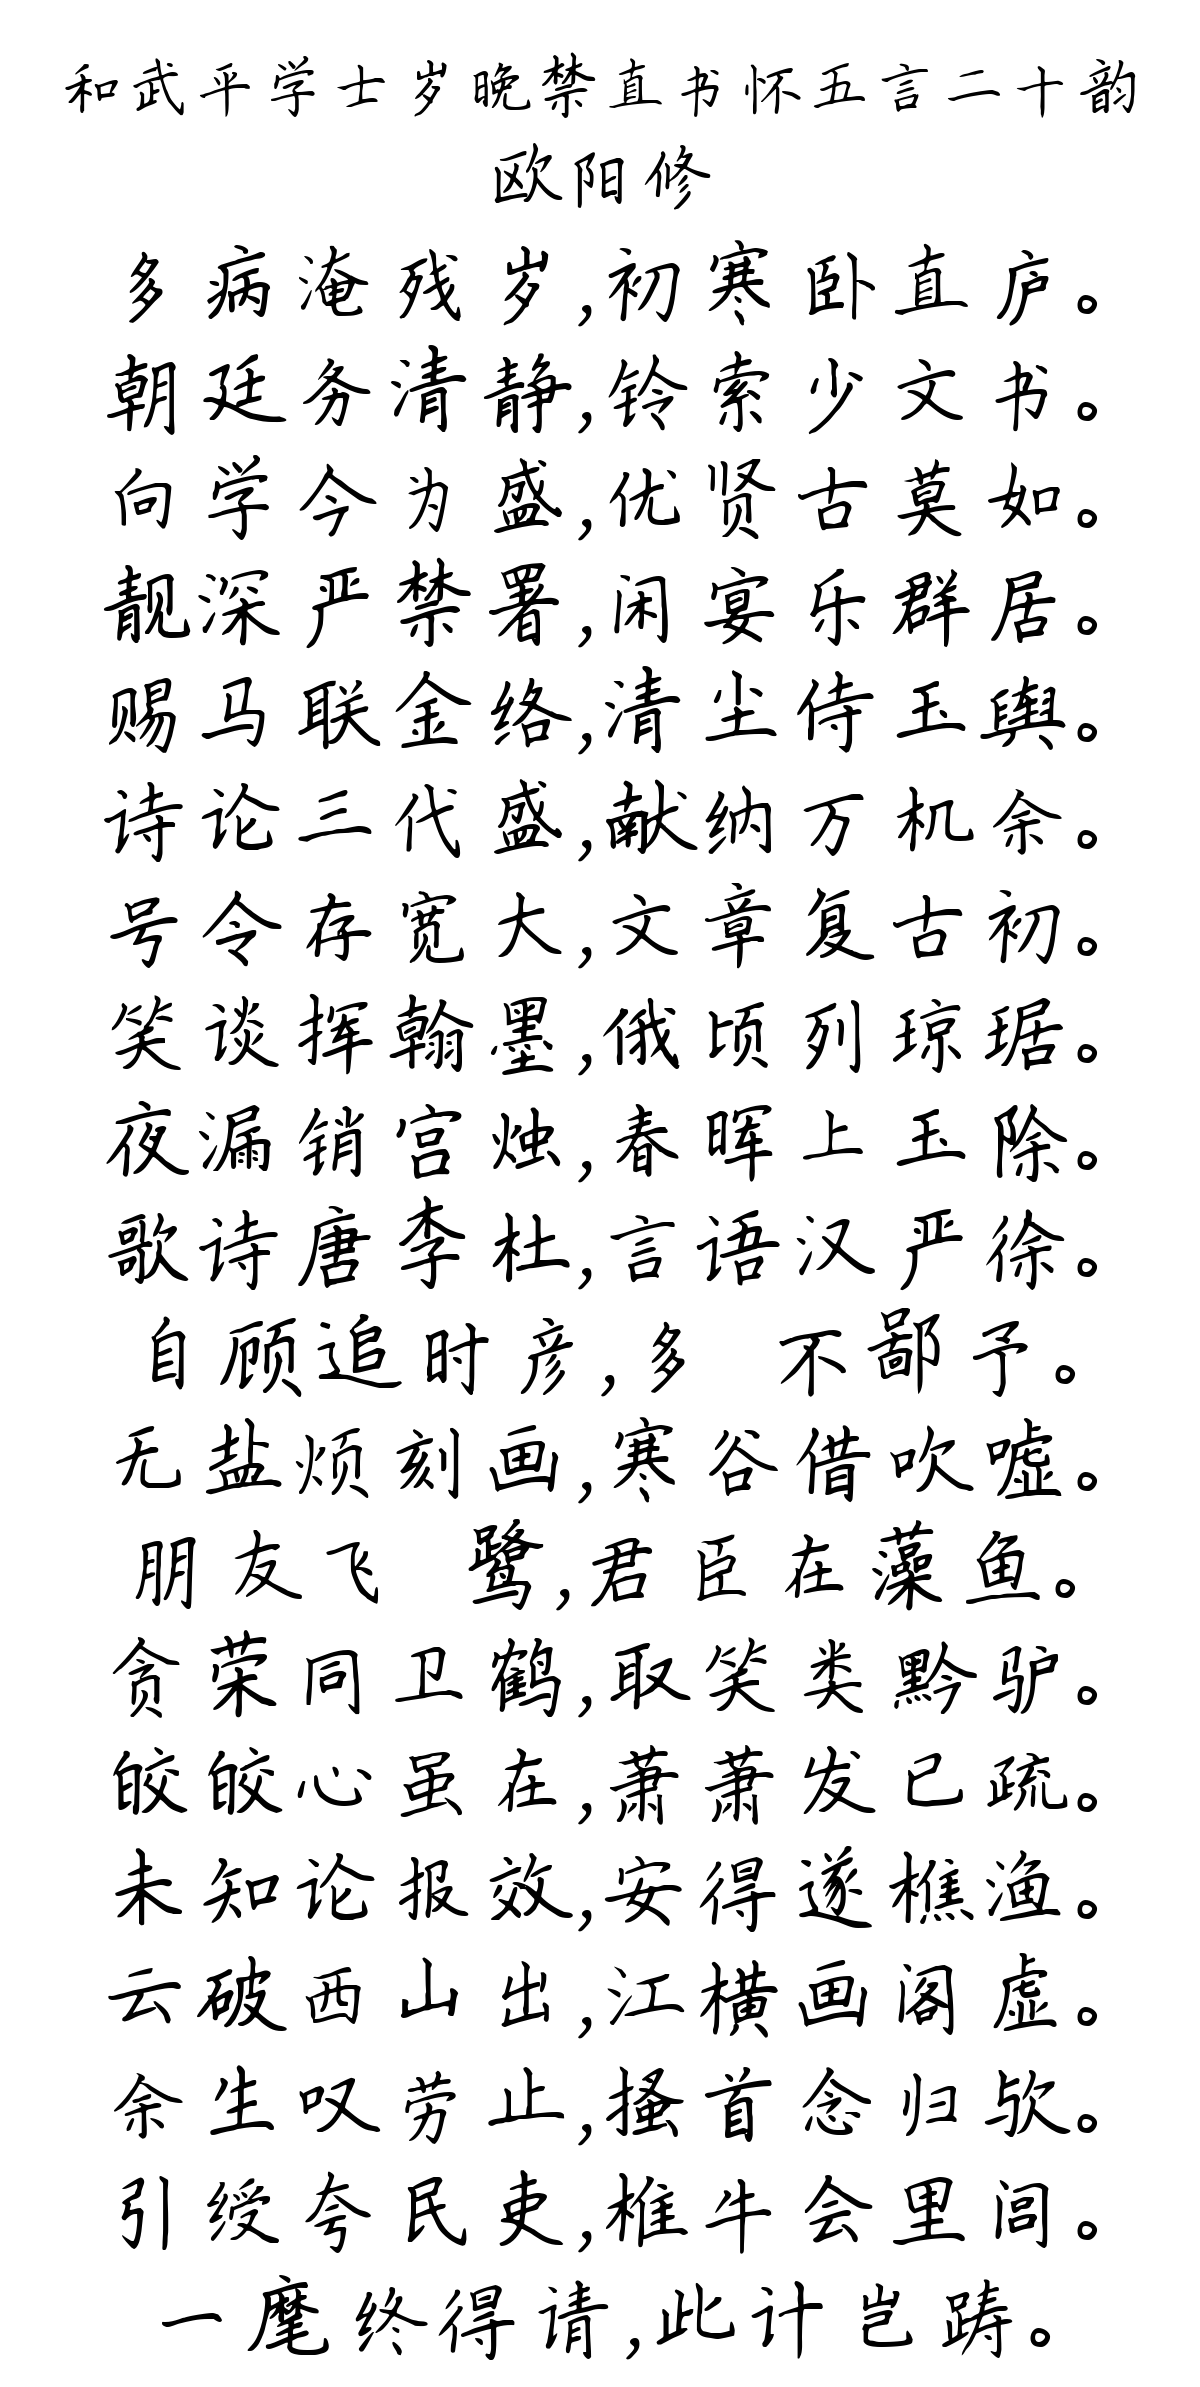 和武平学士岁晚禁直书怀五言二十韵
欧阳修
多病淹残岁,初寒卧直庐。
朝廷务清静,铃索少文书。
向学今为盛,优贤古莫如。
靓深严禁署,闲宴乐群居。
赐马联金络,清尘侍玉舆。
诗论三代盛,献纳万机余。
号令存宽大,文章复古初。
笑谈挥翰墨,俄顷列琼琚。
夜漏销宫烛,春晖上玉除。
歌诗唐李杜,言语汉严徐。
自顾追时彦,多 不鄙予。
无盐烦刻画,寒谷借吹嘘。
朋友飞 鹭,君臣在藻鱼。
贪荣同卫鹤,取笑类黔驴。
皎皎心虽在,萧萧发已疏。
未知论报效,安得遂樵渔。
云破西山出,江横画阁虚。
余生叹劳止,搔首念归欤。
引绶夸民吏,椎牛会里闾。
一麾终得请,此计岂踌。